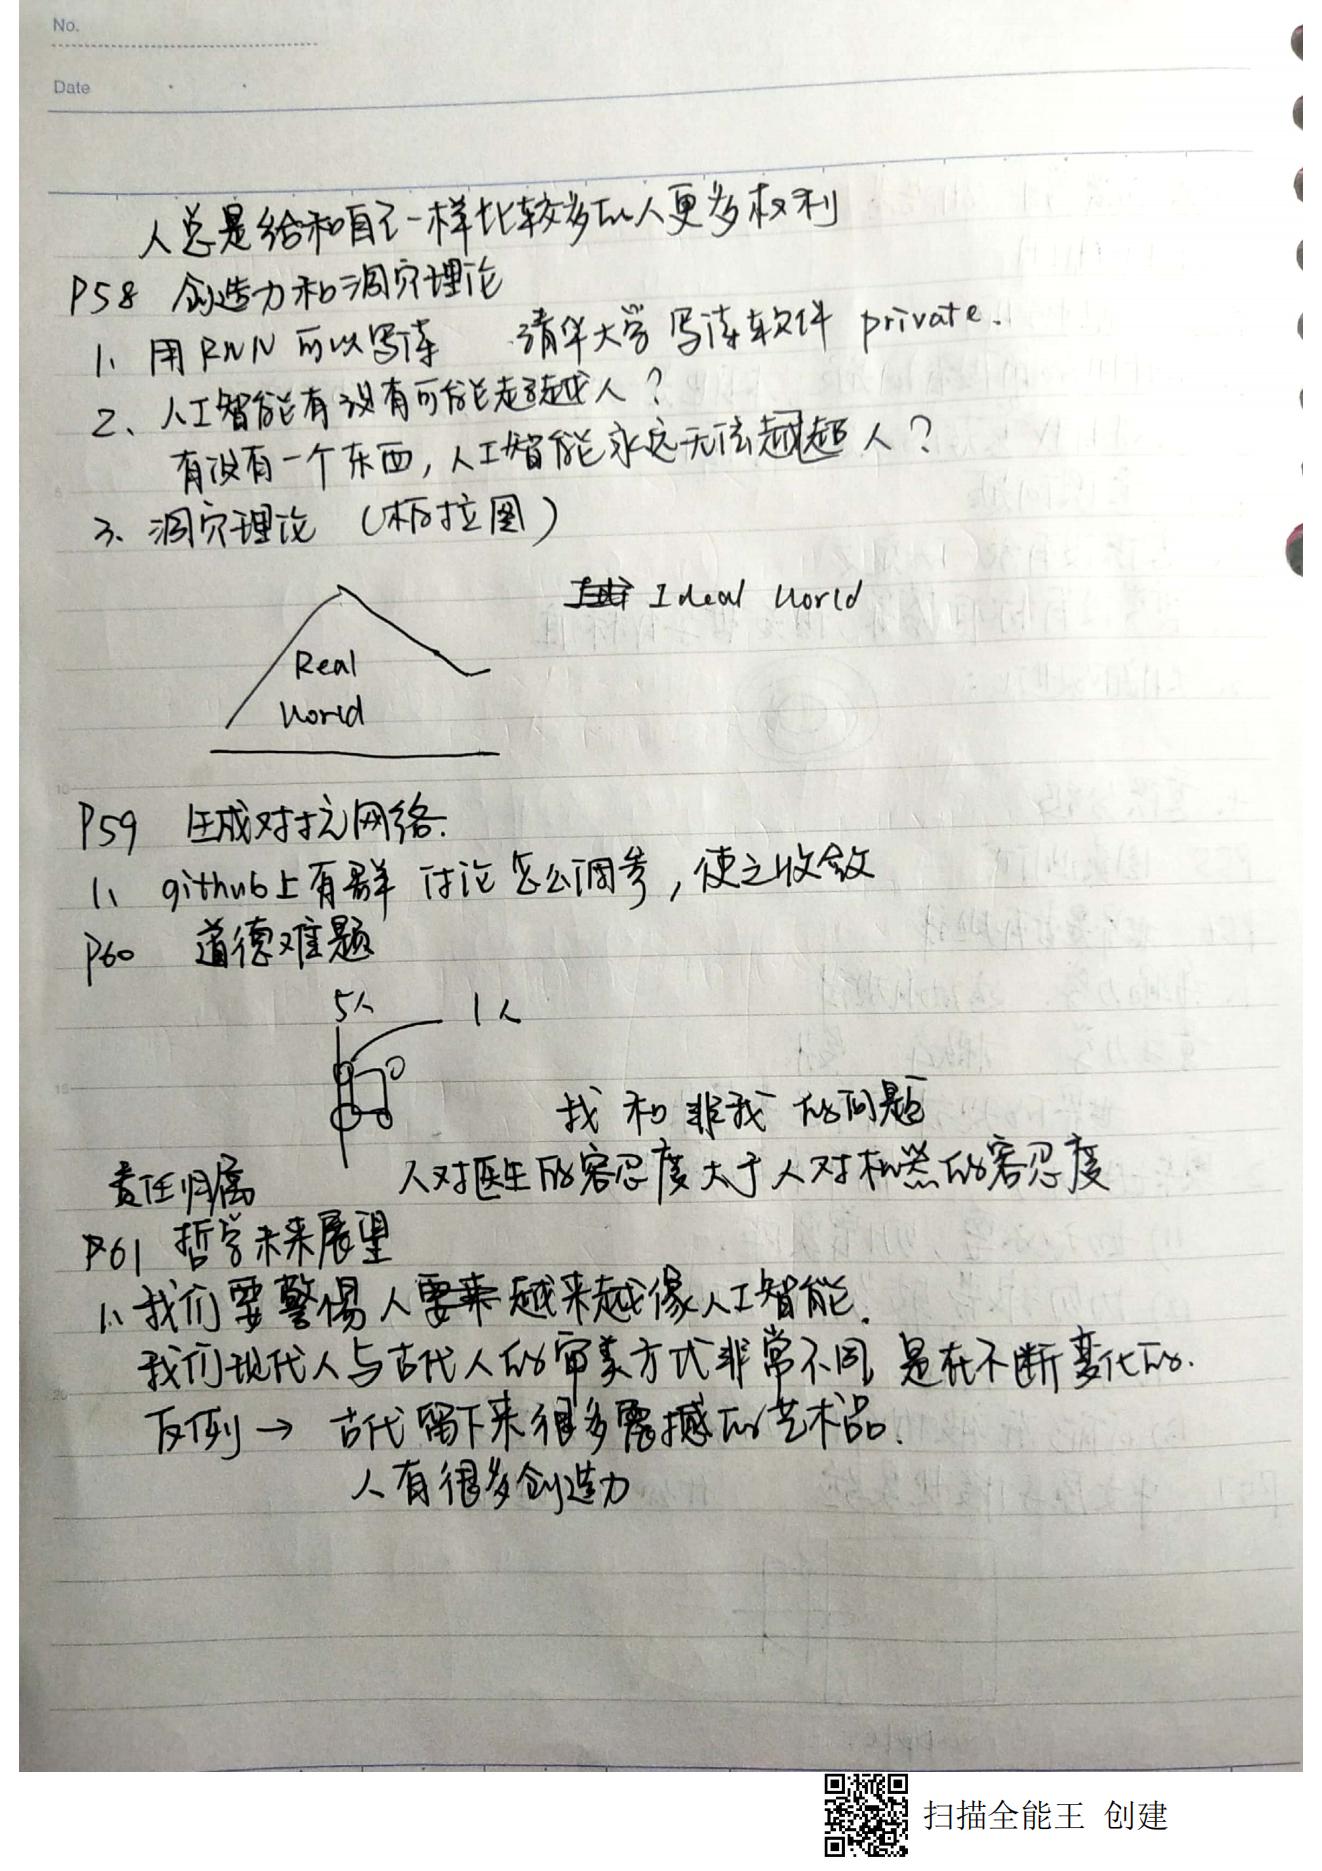 No.
Date
人总是给和自己一样比较多的人更多权利
P58 创造力和洞穴理论
1、用RNN可以写诗 清华大学写诗软件 private.
2、人工智能有没有可能超越人？
有没有一个东西，人工智能永远无法越超人？
3、洞穴理论（柏拉图）
Ideal World
Real
World
P59 生成对抗网络.
1、github上有群讨论怎么调参，使之收敛
P60 道德难题
5人 1人
我和非我的问题
责任归属 人对医生的容忍度大于人对机器的容忍度
P61 哲学未来展望
1、我们要警惕人越来越像人工智能.
我们现代人与古代人的审美方式非常不同，是在不断变化的.
反例→ 古代留下来很多震撼的艺术品.
人有很多创造力
扫描全能王 创建